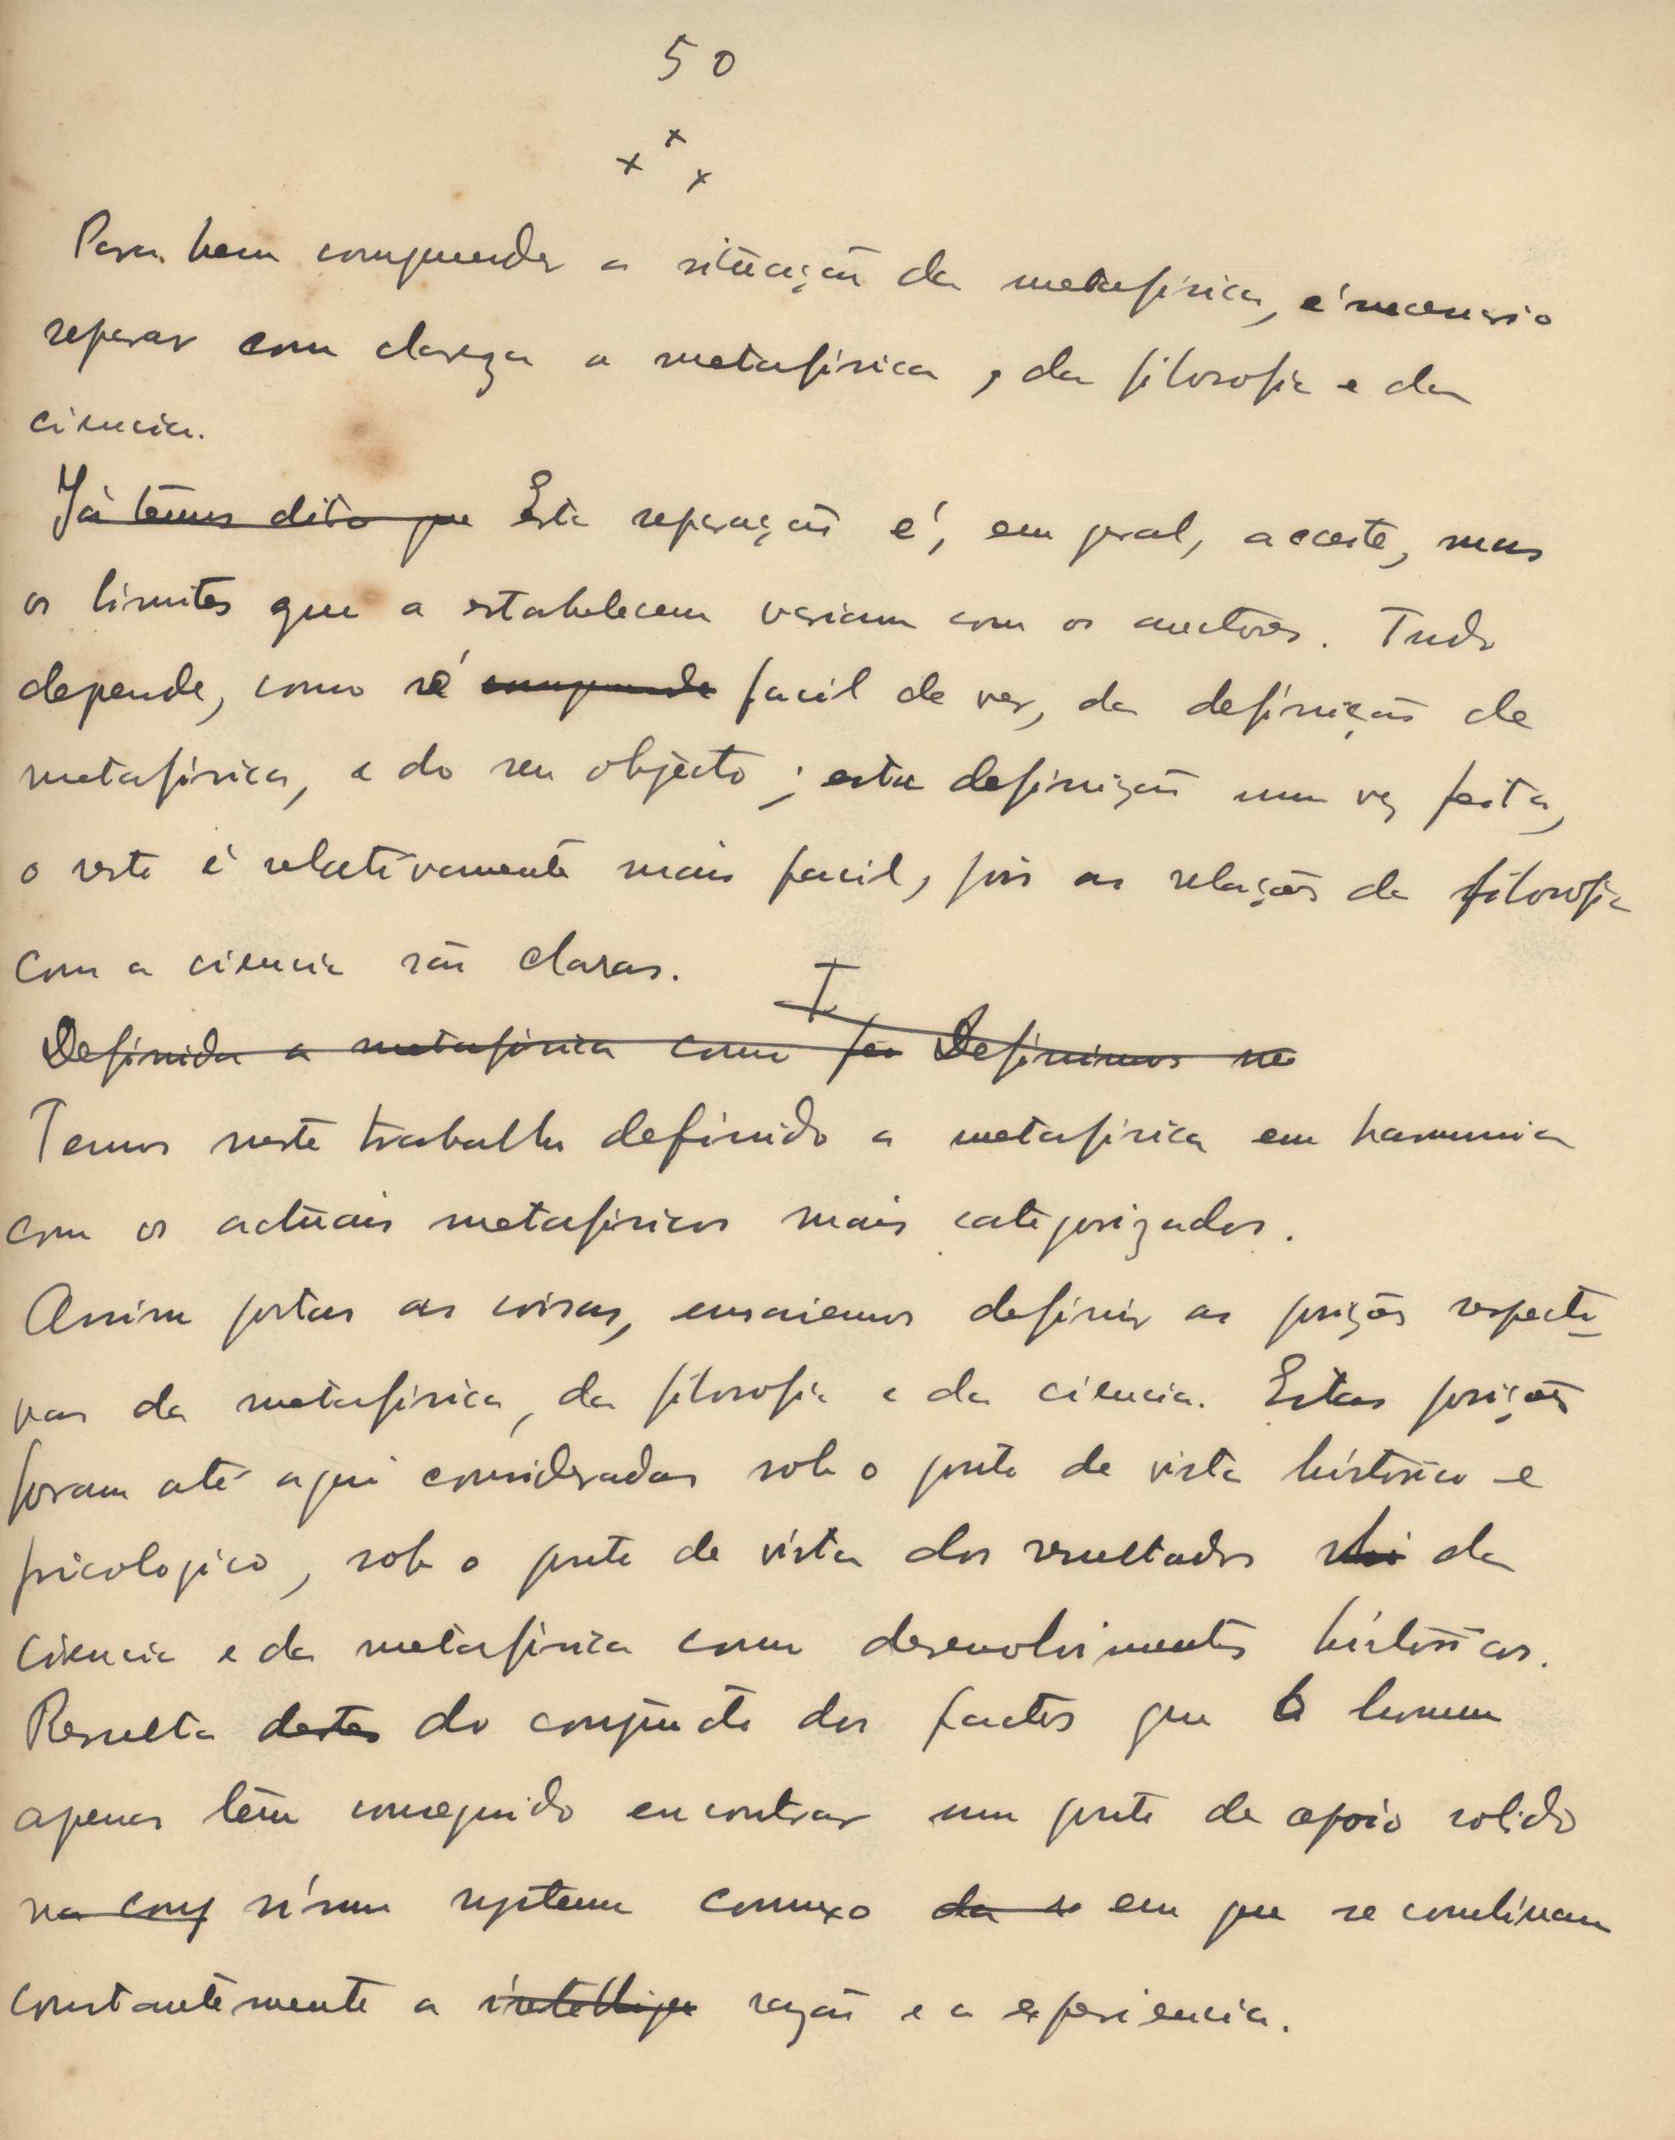 50
x x x
Para bem comprender a situação da metafisica, é necessario
separar com clareza a metafisica, da filosofia e da
ciencia.
Já temos dito que Esta separação é, em geral, aceite, mas
os limites que a estabelecem variam com os auctores. Tudo
depende, como é comprende facil de ver, da definição de
metafisica, e do seu objecto; esta definição uma vez feita,
o resto é relativamente mais facil, pois as relações da filosofia
com a ciencia são claras.
I
Definida a metafisica como foi Definimos no
Temos neste trabalho definido a metafisica em harmonia
com os actuais metafisicos mais categorizados.
Assim postas as coisas, ensaiemos definir as posições respecti-
vas da metafisica, da filosofia e da ciencia. Estas posições
foram até aqui consideradas sob o ponto de vista historico e
psicologico, sob o ponto de vista dos resultados da
ciencia e da metafisica como desenvolvimentos historicos.
Resulta destes do conjuncto dos factos que o homem
apenas tem conseguido encontrar um ponto de apoio solido
na conj n'um systema connexo da em que se combinam
constantemente a intellige razão e a experiencia.